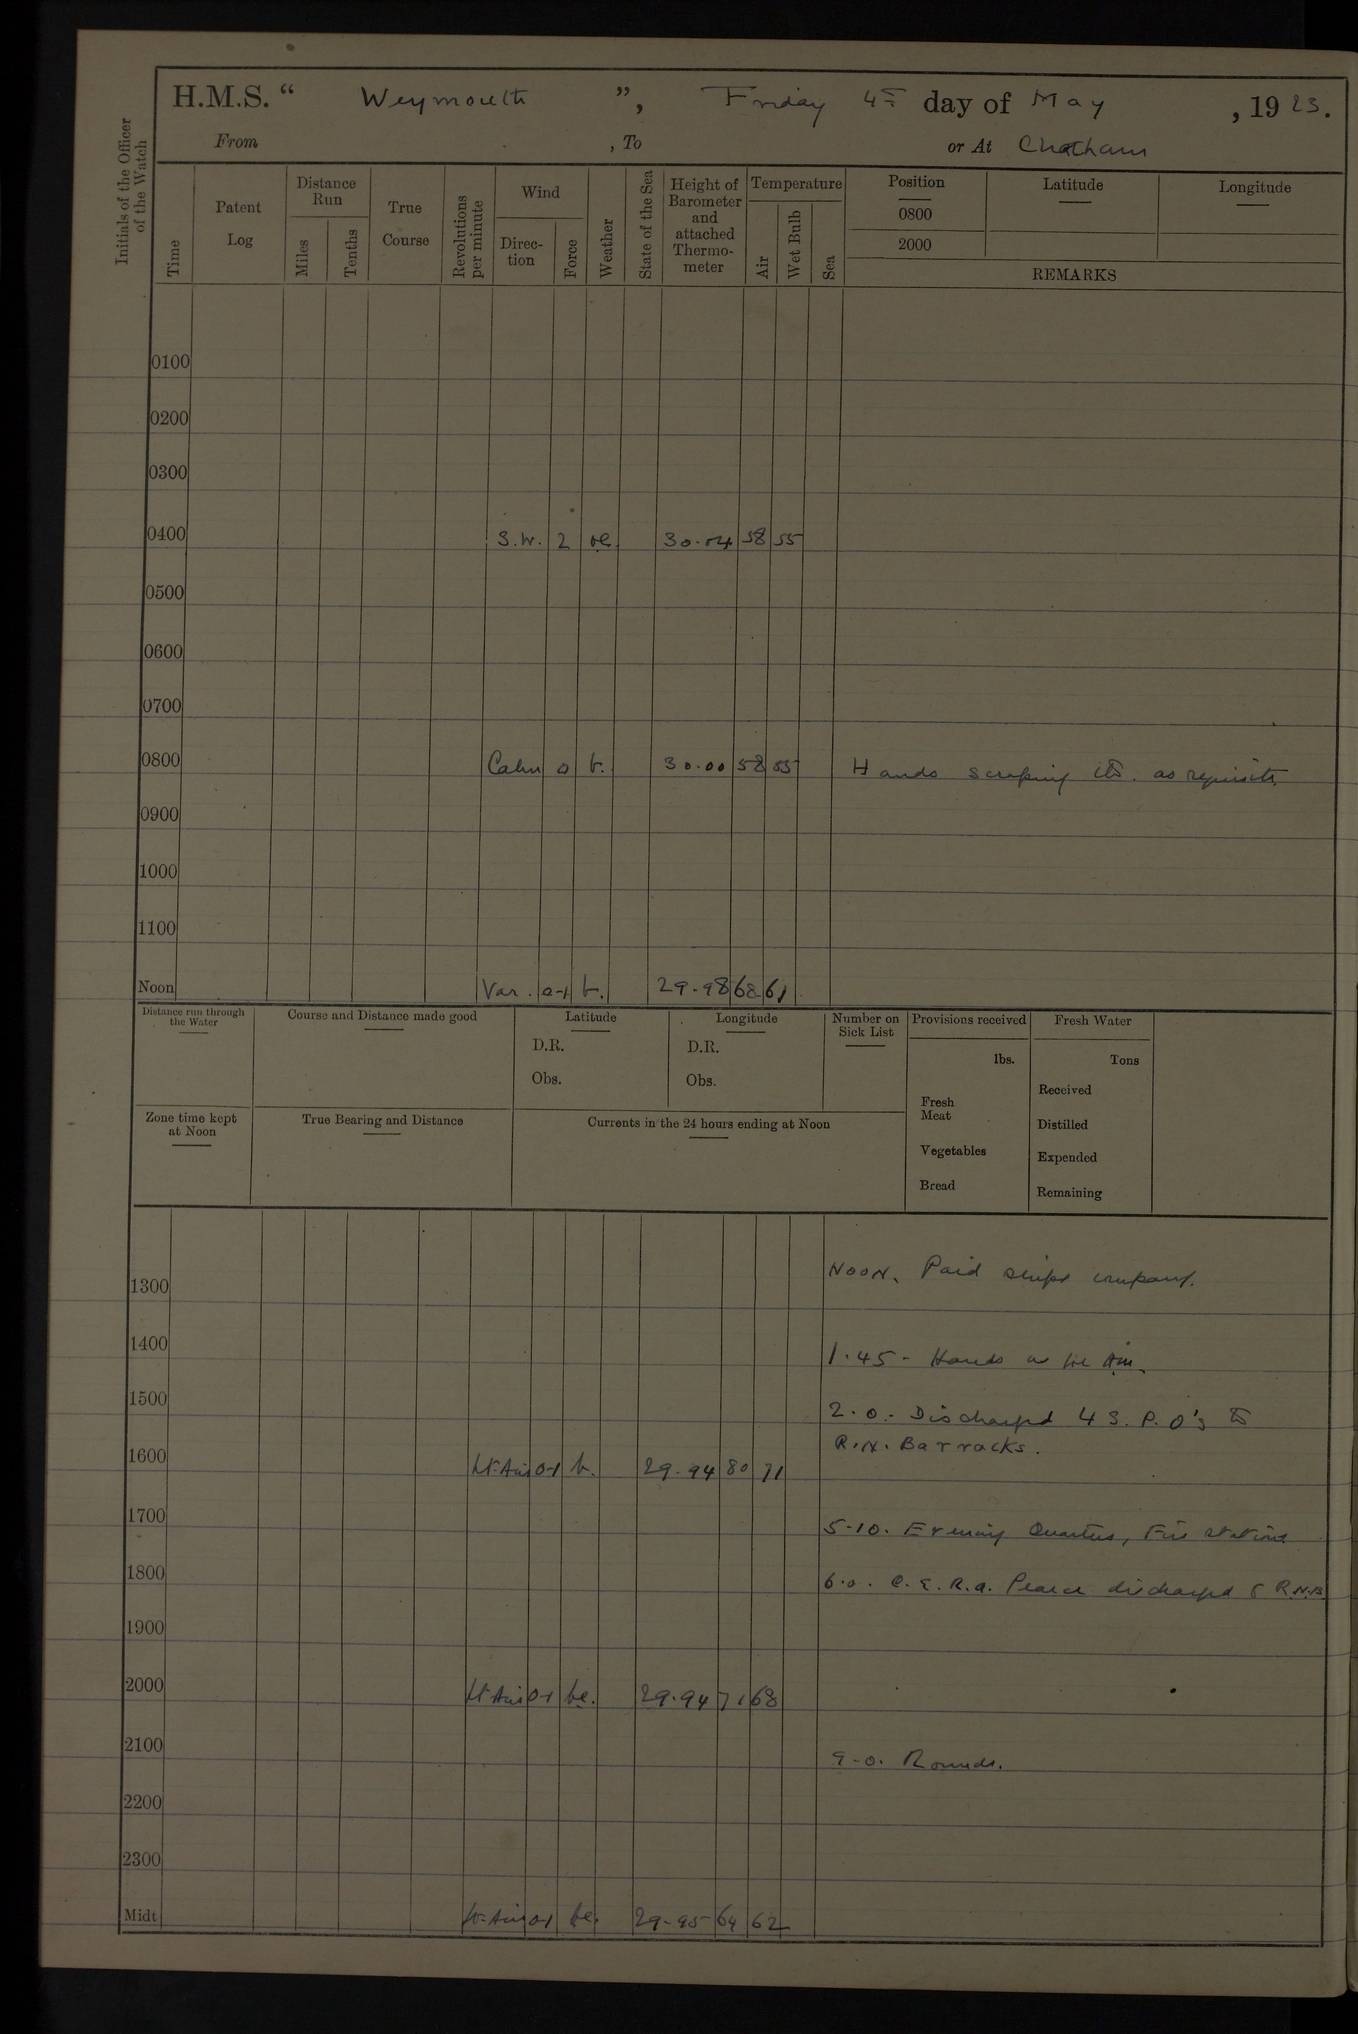 H.M.S. “ Weymouth ”, Friday 4th day of May , 1923.
From , To or At Chatham
Initials of the Officer of the Watch
Time
Patent Log
Distance Run
Miles
Tenths
True Course
Revolutions per minute
Wind
Direc-tion
Force
Weather
State of the Sea
Height of Barometer and attached Thermo-meter
Temperature
Air
Wet Bulb
Sea
Position
0800
2000
Latitude
Longitude
REMARKS
0100
0200
0300
0400 S.W. 2 30.04 58 55
0500
0600
0700
0800 Calm 0 b. 30.00 58 55 Hands scraping etc. as requisite.
0900
1000
1100
Noon Var. 0-1 b. 29.98 68 61
Distance run through the Water
Course and Distance made good
Latitude
D.R.
Obs.
Longitude
D.R.
Obs.
Number on Sick List
Provisions received
lbs.
Fresh Meat
Vegetables
Bread
Fresh Water
Tons
Received
Distilled
Expended
Remaining
Zone time kept at Noon
True Bearing and Distance
Currents in the 24 hours ending at Noon
NOON. Paid ships company.
1300
1400 1.45 - Hands as
1500 2.0. - Discharged 4 S.P.O's to
R.N. Barracks.
1600 Lt. Airs 0-1 b. 29.94 80 71
1700 5.10. Evening Quarters, Fire stations
1800 6.0. C.E.R.A. Pearce discharged to R.N.B.
1900
2000 Lt Airs 0-1 bc. 29.94 71 68
2100 9.0. Rounds.
2200
2300
Midt Lt-Airs 0-1 bc. 29.95 64 62